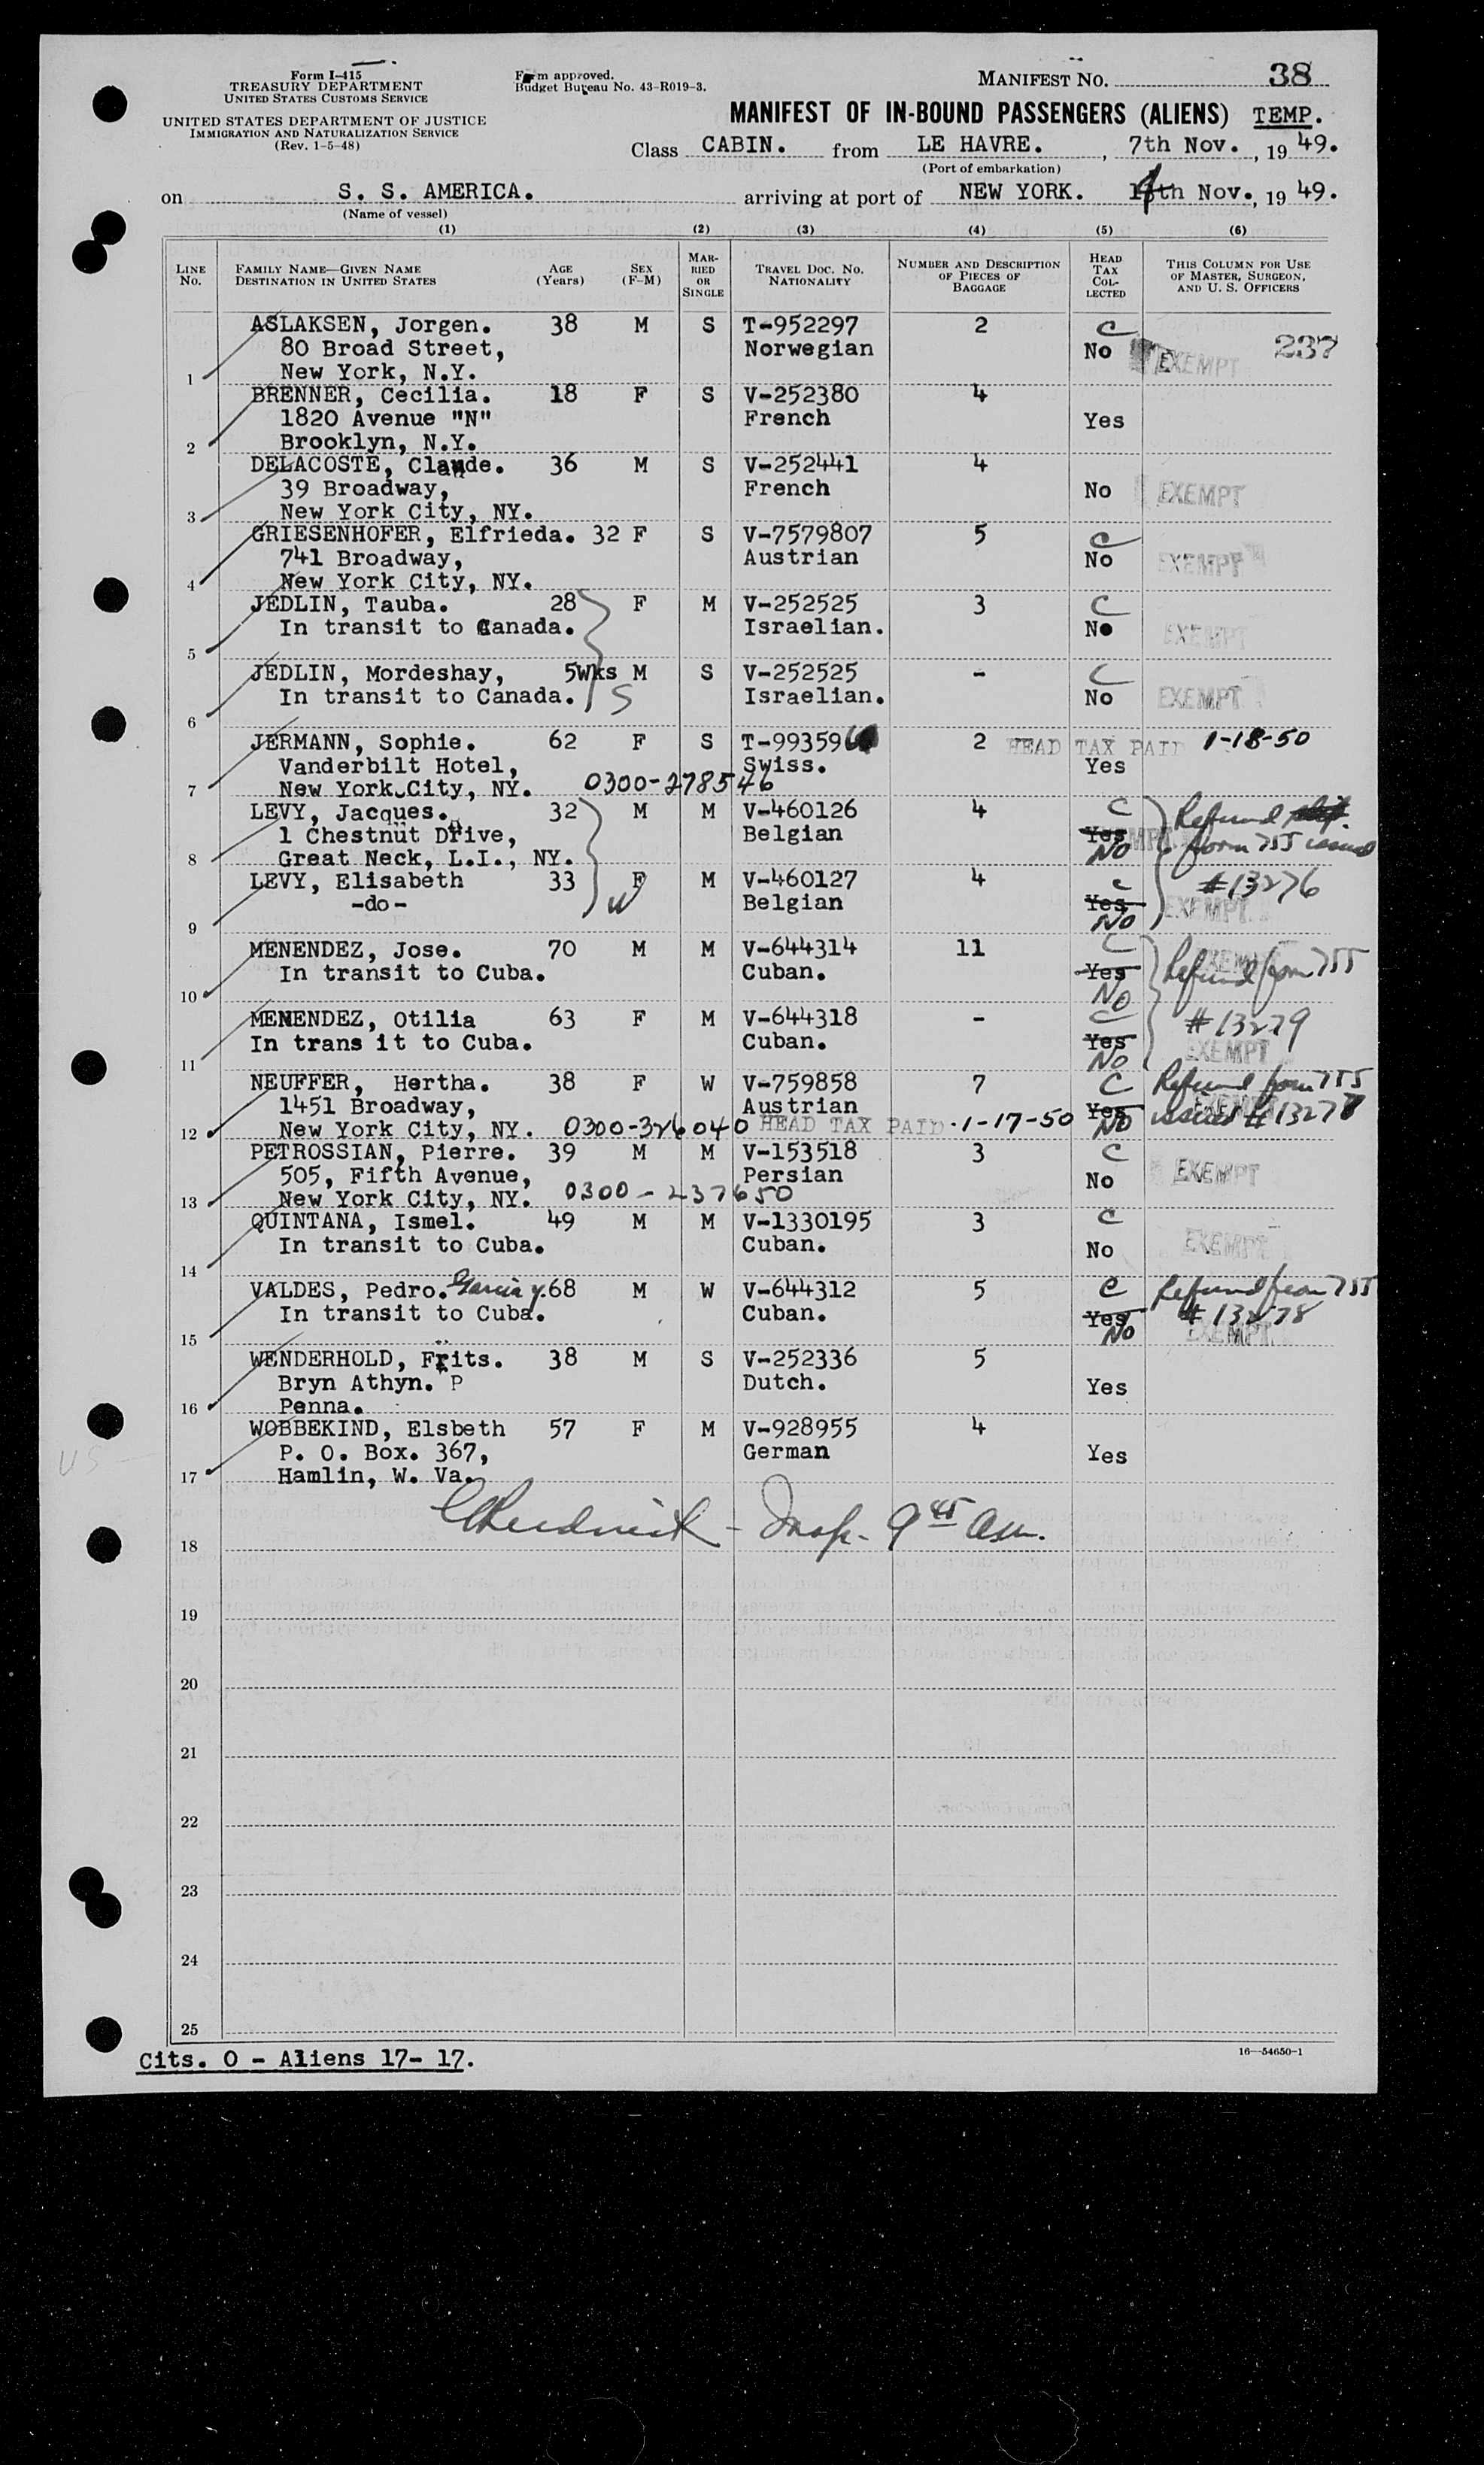 Form I-415
TREASURY DEPARTMENT
UNITED STATES CUSTOMS SERVICE
UNITED STATES DEPARTMENT OF JUSTICE
IMMIGRATION AND NATURALIZATION SERVICE
(Rev. 1-5-48)
Form approved.
Budget Bureau No. 43-R019-3.
MANIFEST NO. 38
MANIFEST OF IN-BOUND PASSENGERS (ALIENS) TEMP.
Class CABIN. from LE HAVRE. , 7th Nov. , 19 49.
(Port of embarkation)
on S. S. AMERICA. arriving at port of NEW YORK. th Nov., 19 49.
(Name of vessel)
(1) (2) (3) (4) (5) (6)
LINE No. FAMILY NAME—GIVEN NAME DESTINATION IN UNITED STATES AGE (Years) SEX (F-M) MARRIED OR SINGLE TRAVEL DOC. NO. NATIONALITY NUMBER AND DESCRIPTION OF PIECES OF BAGGAGE HEAD TAX COLLECTED THIS COLUMN FOR USE OF MASTER, SURGEON, AND U. S. OFFICERS
ASLAKSEN, Jorgen. 38 M S T-952297 2 C
80 Broad Street, Norwegian No EXEMPT 237
1 New York, N.Y.
BRENNER, Cecilia. 18 F S V-252380 4
1820 Avenue "N" French Yes
2 Brooklyn, N.Y.
DELACOSTE, Claude. 36 M S V-252441 4
39 Broadway, French No EXEMPT
3 New York City, NY.
GRIESENHOFER, Elfrieda. 32 F S V-7579807 5 C
741 Broadway, Austrian No EXEMPT
4 New York City, NY.
JEDLIN, Tauba. 28 F M V-252525 3 C
In transit to Canada. Israelian. No EXEMPT
5
JEDLIN, Mordeshay, 5Wks M S V-252525 - C
In transit to Canada. S Israelian. No EXEMPT
6
JERMANN, Sophie. 62 F S T-99359 2 HEAD TAX PAID 1-18-50
Vanderbilt Hotel, Swiss. Yes
7 New York City, NY. 0300-278546
LEVY, Jacques. 32 M M V-460126 4 C Refund
1 Chestnut Drive, Belgian Yes form 755 issued
8 Great Neck, L.I., NY. NO
LEVY, Elisabeth 33 F M V-460127 4 C #13276
-do- W Belgian Yes EXEMPT
9 NO
MENENDEZ, Jose. 70 M M V-644314 11 C EXEMPT
In transit to Cuba. Cuban. Yes Refund form 755
10 NO
MENENDEZ, Otilia 63 F M V-644318 - C #13279
In trans it to Cuba. Cuban. Yes EXEMPT
11 NO
NEUFFER, Hertha. 38 F W V-759858 7 C Refund form 755
1451 Broadway, Austrian Yes issued # 13277 EXEMPT
12 New York City, NY. 0300-326040 HEAD TAX PAID 1-17-50 NO
PETROSSIAN, Pierre. 39 M M V-153518 3 C
505, Fifth Avenue, Persian No EXEMPT
13 New York City, NY. 0300-237650
QUINTANA, Ismel. 49 M M V-1330195 3 C
In transit to Cuba. Cuban. No EXEMPT
14
VALDES, Pedro. Garcia y. 68 M W V-644312 5 C Refund form 755
In transit to Cuba. Cuban. Yes # 13278
15 NO EXEMPT
WENDERHOLD, Frits. 38 M S V-252336 5
Bryn Athyn. P Dutch. Yes
16 Penna.
WOBBEKIND, Elsbeth 57 F M V-928955 4
P. O. Box. 367, German Yes
17 Hamlin, W. Va.
- Insp. - 9 45 am.
18
19
20
21
22
23
24
25
Cits. 0 - Aliens 17- 17.
16—54650-1